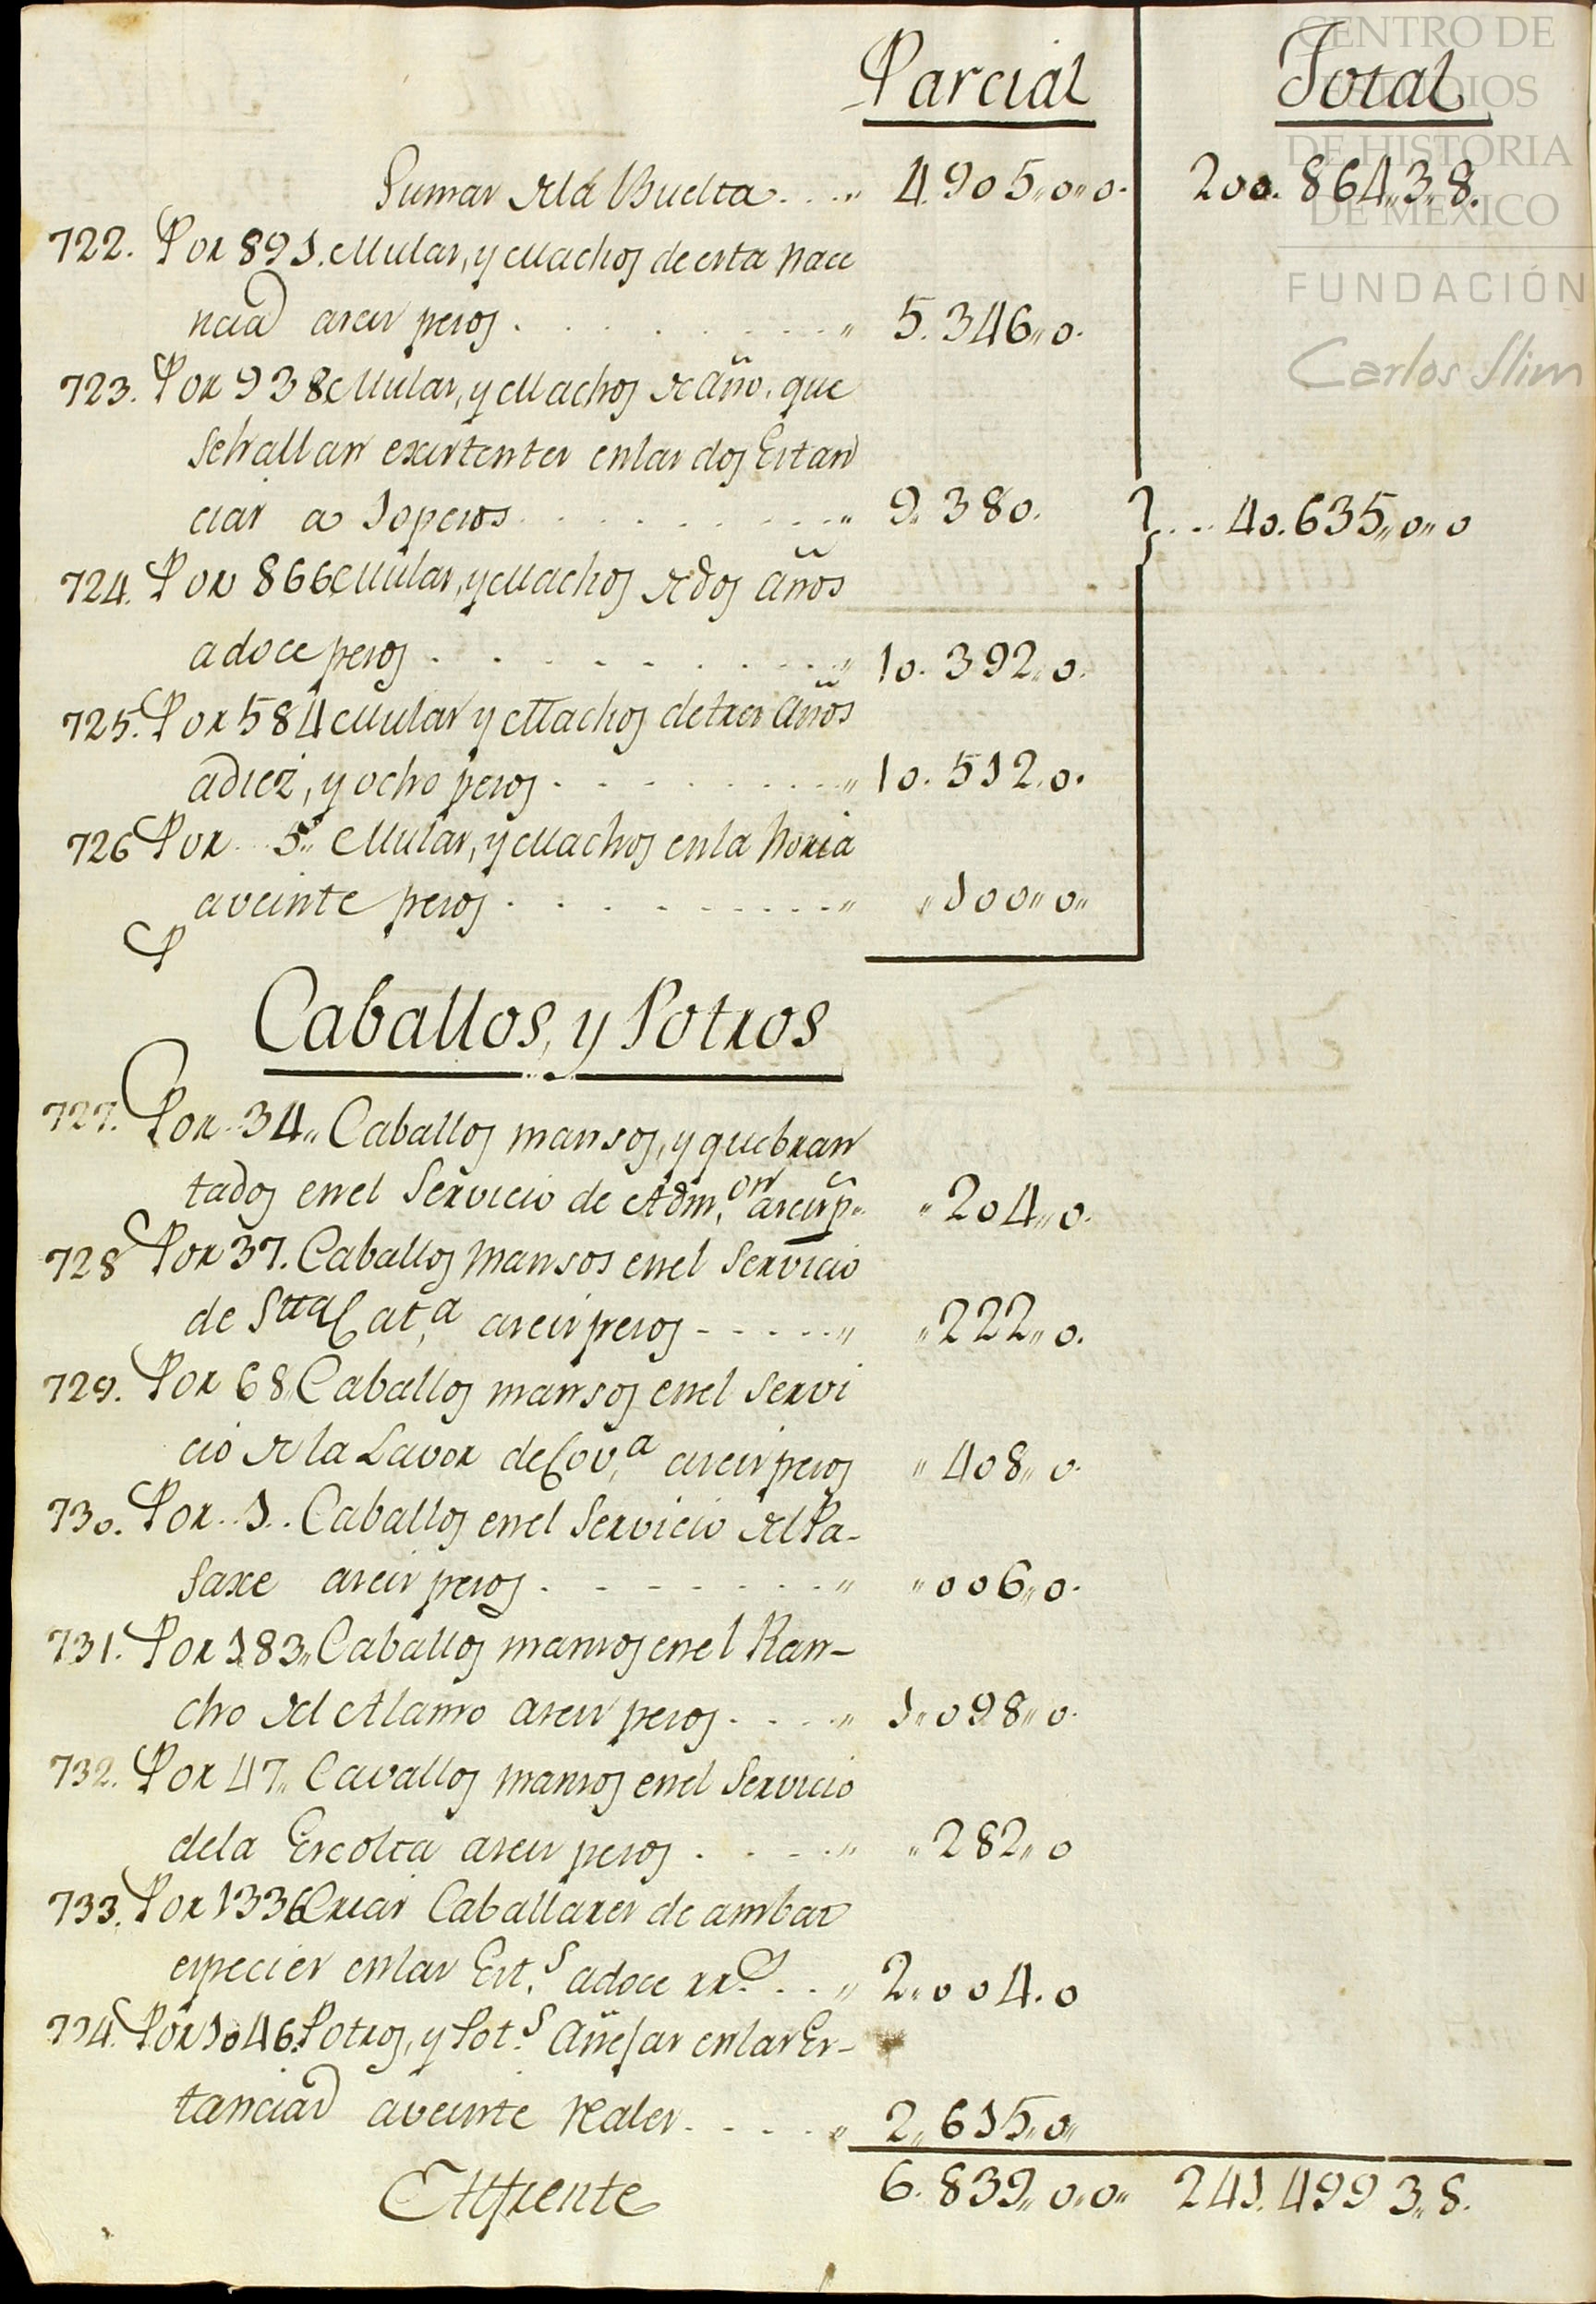 Parcial Total
Sumas de la Buelta.... 4.905,,0,,0. 200.864,,3,,8.
722. Por 891. Mulas, y Machos de esta Nace
ncia a seis pesos . . . . . . . . 5.346,,0.
723. Por 938 Mulas, y Machos de año, que
se hallan existentes en las dos Estan
cias a 10 pesos . . . . . . . . 9.380. }... 40.635,,0,,0
724. Por 866 Mulas, y Machos de dos años
a doce pesos . . . . . . . . 10.392,,0.
725. Por 584 Mulas y Machos de tres años
a diez, y ocho pesos . . . . . . . . 10.512.0.
726 Por 5,, Mulas, y Machos en la Noria
a veinte pesos . . . . . . . . ,,100,,0,,
Caballos, y Potros
727. Por 34,, Caballos mansos, y quebran
tados en el Servicio de Adm.on a seis p.s ,,204,,0.
728 Por 37. Caballos Mansos en el Servicio
de Stta Cat.a a seis pesos - - . . . . ,,222,,0.
729. Por 68 Caballos mansos en el Servi
cio de la Lavor de Cov.a a seis pesos ,,408,,0.
730. Por 1.. Caballos en el Servicio del Pa-
saxe a seis pesos . . . . . . . ,,006,,0.
731. Por 183,, Caballos mansos en el Ran-
cho del Alamo a seis pesos . . . . 1,,098,,0.
732. Por 47,, Cavallos mansos en el Servicio
de la Escolta a seis pesos . . . . ,,282,,0
733. Por 1336 Crias Caballares de ambas
especies en las Est.s a doce rr.s . . . 2.004.0
734. Por 1046. Potros, y Pot.s Añejas en las Es-
tancias a veinte Reales . . . . 2,,615,,0,,
Enfrente 6.839,,0,,0,, 241.499 3,,8.
CENTRO DE
ESTUDIOS
DE HISTORIA
DE MÉXICO
FUNDACIÓN
Carlos Slim